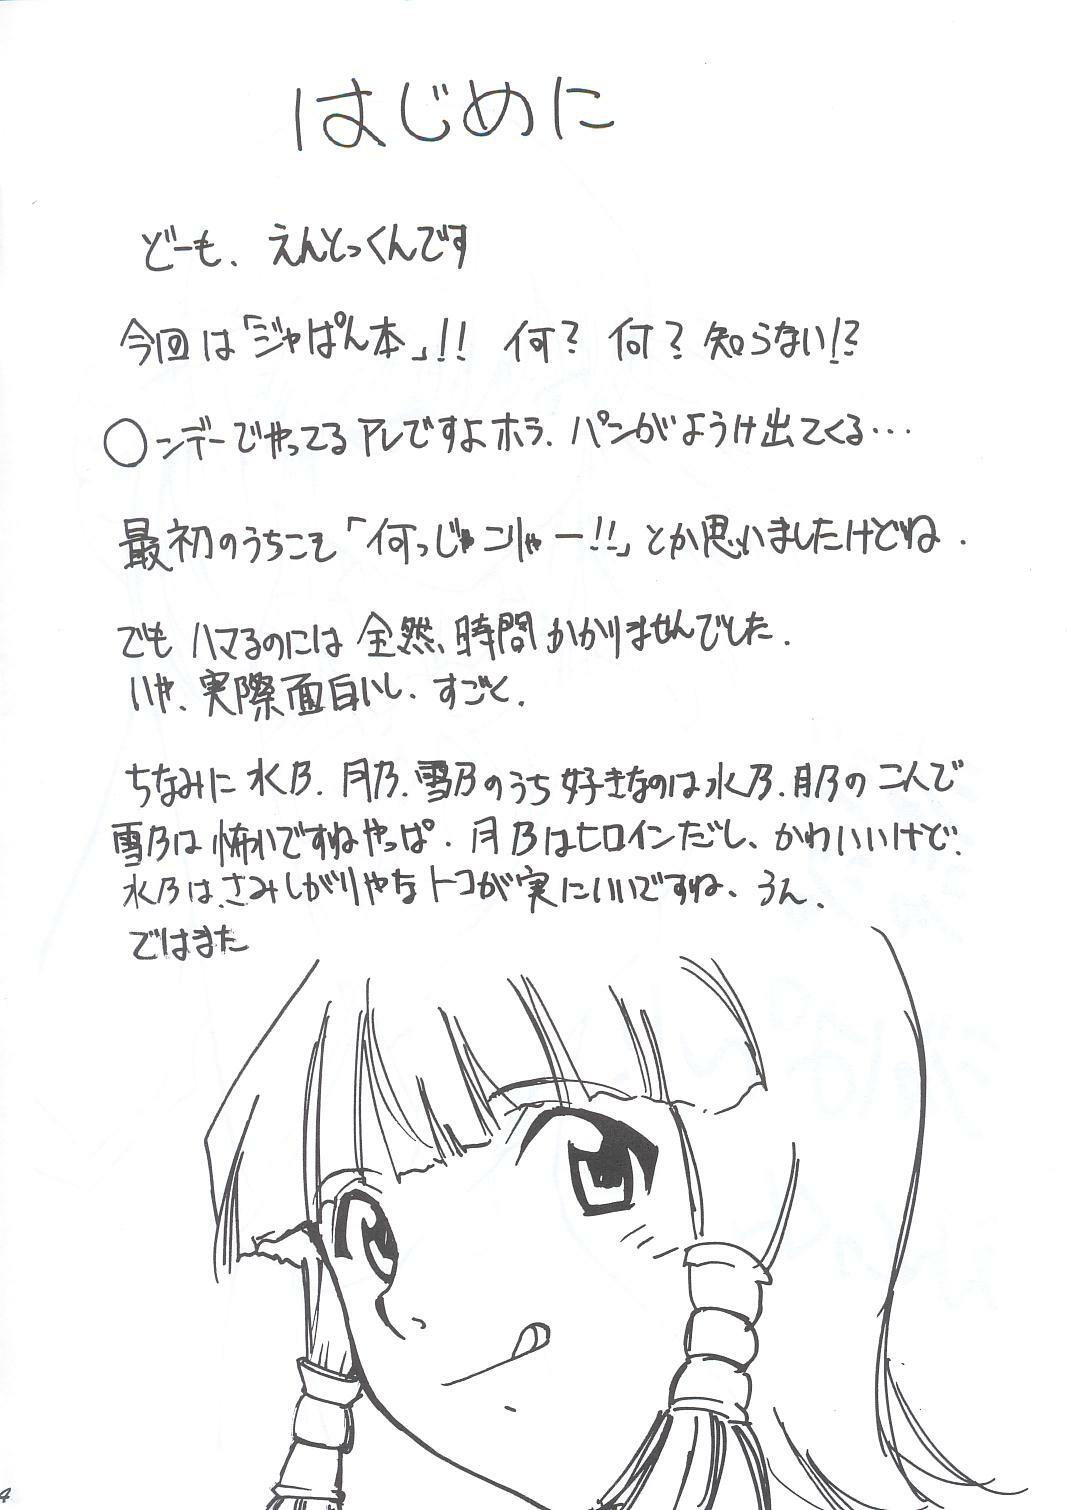 はじめに
どーも、えんとっくんです
今回は「ジャぱん本」!! 何? 何? 知らない!?
○ンデーでやってるアレですよホラ、パンがようけ出てくる…
最初のうちこそ「何っじゃこりゃー!!」とか思いましたけどね.
でもハマるのには全然、時間かかりませんでした.
いや、実際面白いし、すごと.
ちなみに水乃.月乃.雪乃のうち好きなのは水乃.月乃の二人で
雪乃は怖いですねやっぱ.月乃はヒロインだし、かわいいけど.
水乃は、さみしがりやなトコが実にいいですね、うん.
ではまた
4